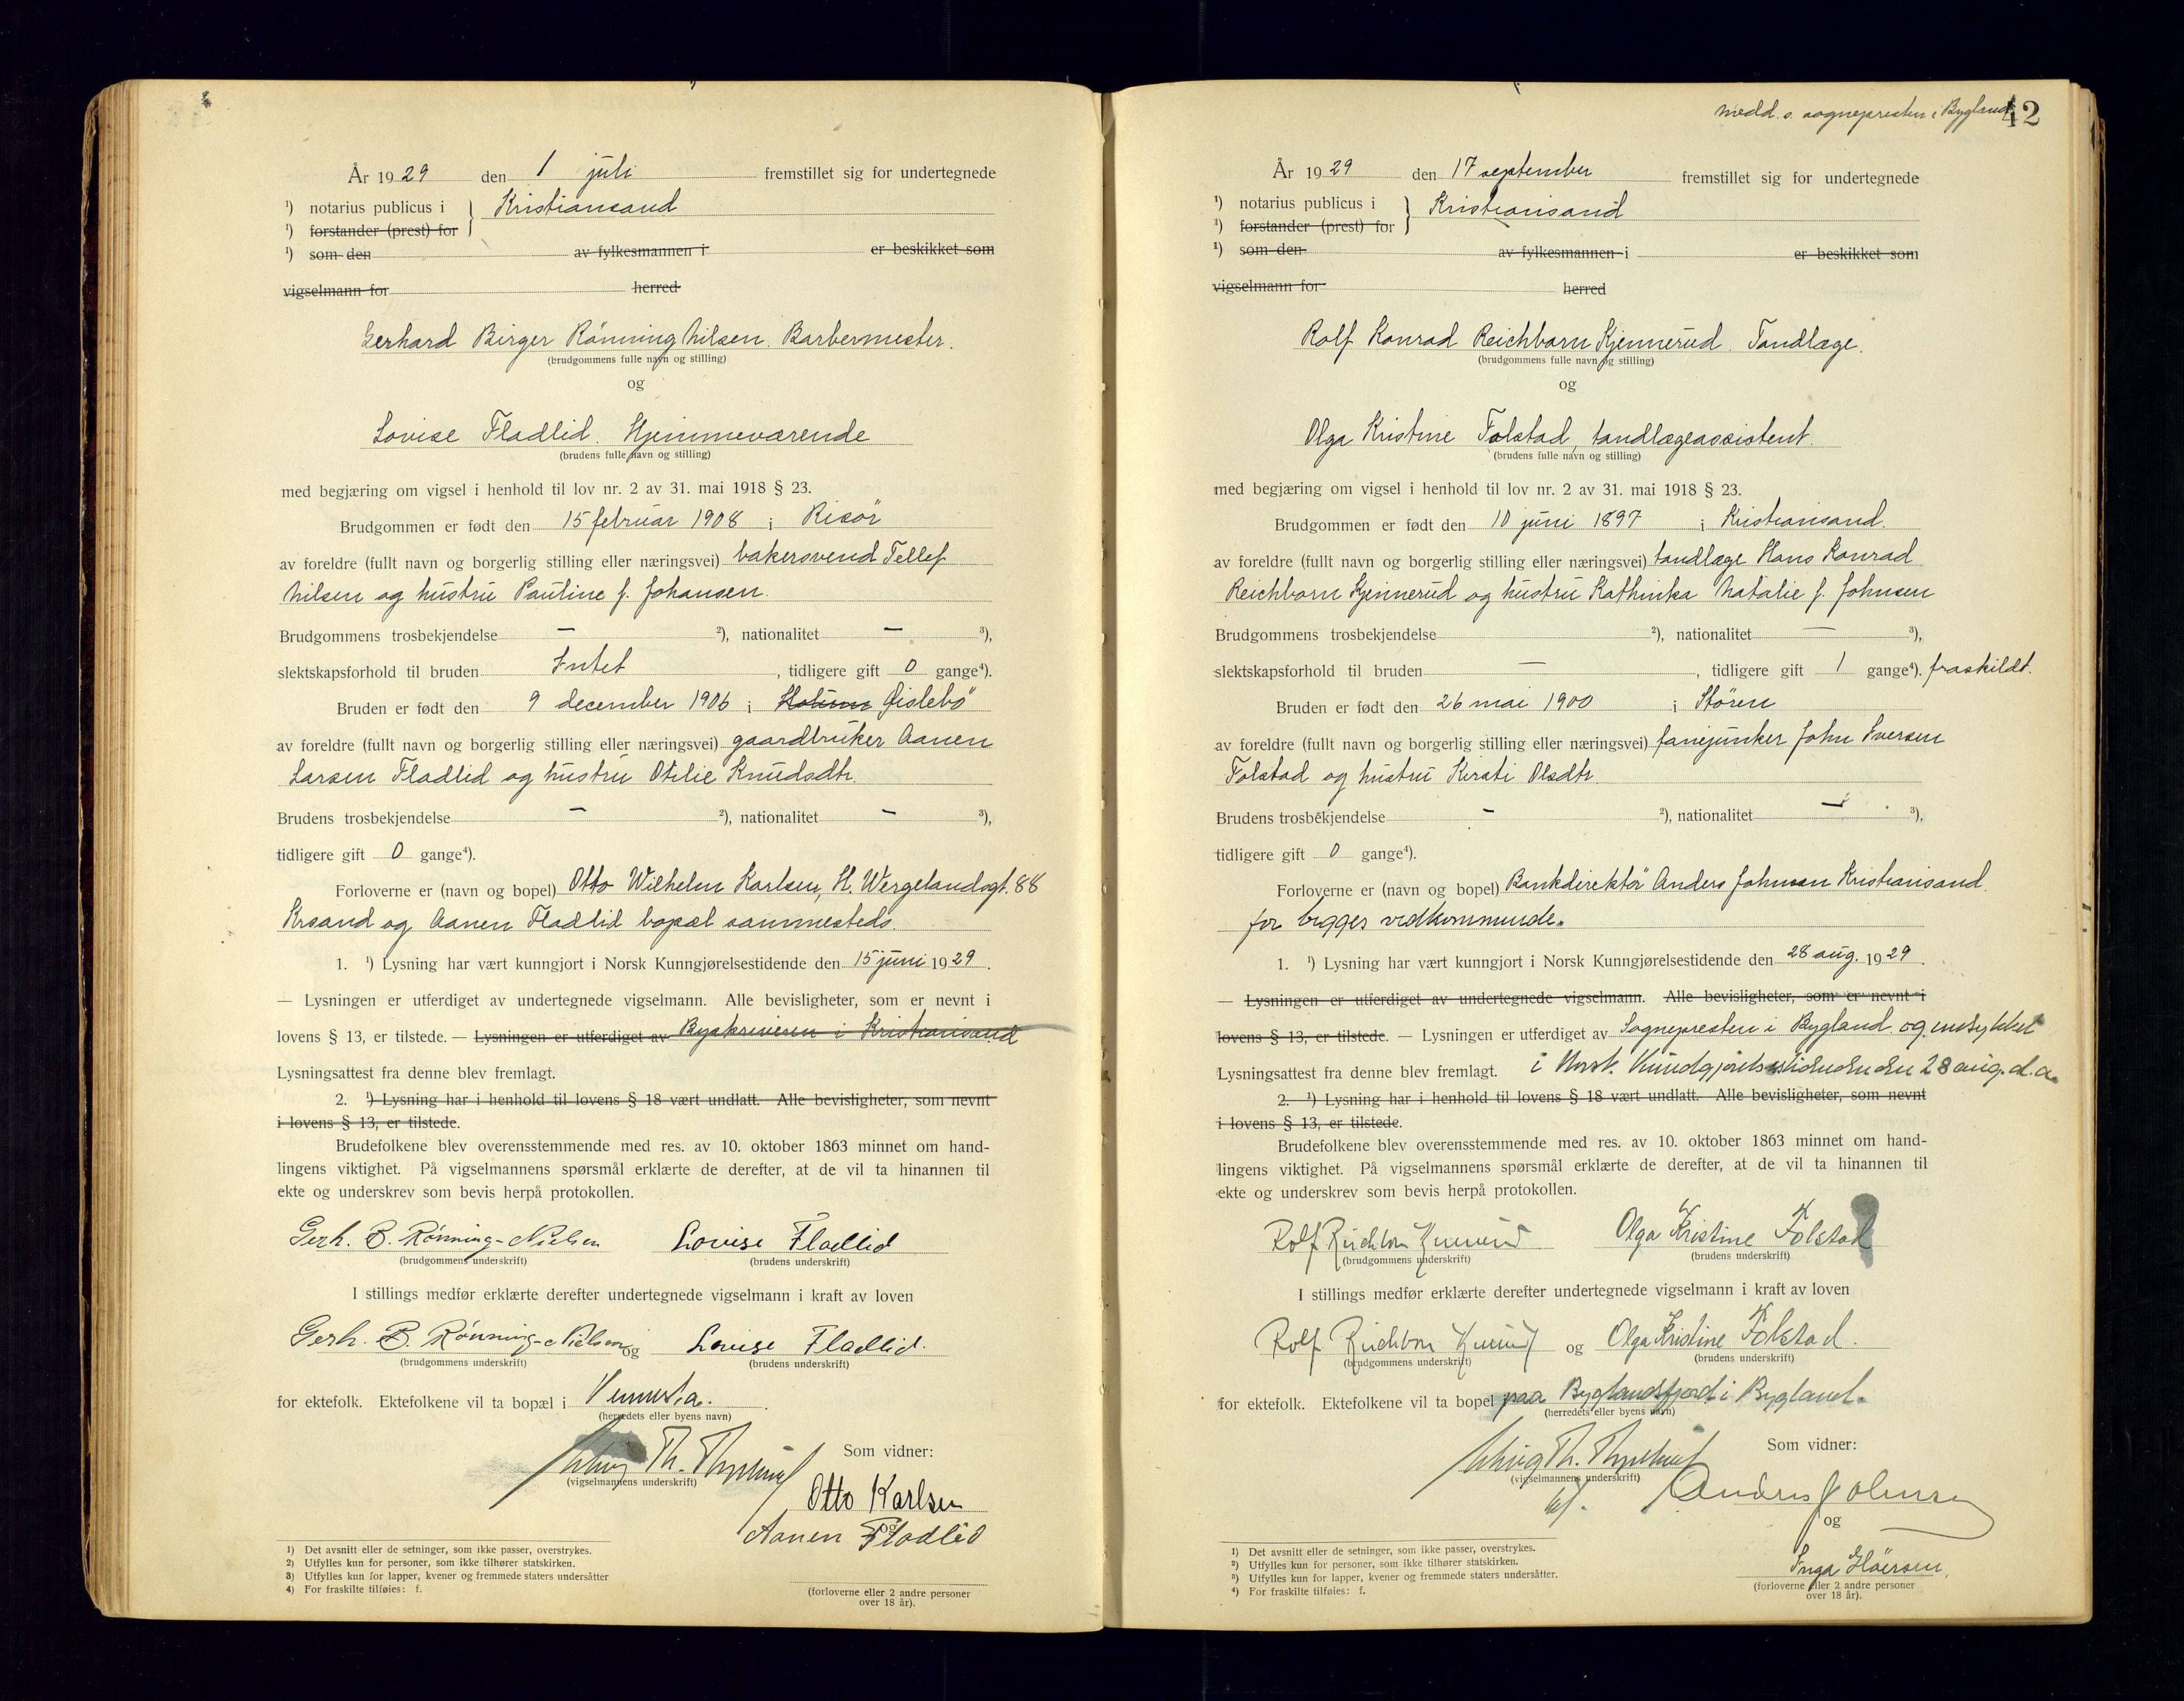 År 1929 den 1 juli fremstillet sig for undertegnede
¹) notarius publicus i } Kristiansand
¹) forstander (prest) for
¹) som den av fylkesmannen i er beskikket som
vigselmann for herred
Gerhard Birger Rönning Nilsen. Barbermester.
(brudgommens fulle navn og stilling)
og
Lovise Fladlid. Hjemmeværende
(brudens fulle navn og stilling)
med begjæring om vigsel i henhold til lov nr. 2 av 31. mai 1918 § 23.
Brudgommen er født den 15 februar 1908 i Risör
av foreldre (fullt navn og borgerlig stilling eller næringsvei) bakersvend Tellef
Nilsen og hustru Pauline f. Johansen.
Brudgommens trosbekjendelse — ²), nationalitet — ³),
slektskapsforhold til bruden Intet, tidligere gift 0 gange⁴).
Bruden er født den 9 december 1906 i Holum Øislebö
av foreldre (fullt navn og borgerlig stilling eller næringsvei) gaardbruker Aanen
Larsen Fladlid og hustru Otilie Knudsdtr.
Brudens trosbekjendelse — ²), nationalitet — ³),
tidligere gift 0 gange⁴).
Forloverne er (navn og bopel) Otto Wilhelm Karlsen, H. Wergelandsgt. 88
Krsand og Aanen Fladlid bopæl sammesteds.
1. ¹) Lysning har vært kunngjort i Norsk Kunngjørelsestidende den 15 juni 1929.
— Lysningen er utferdiget av undertegnede vigselmann. Alle bevisligheter, som er nevnt i
lovens § 13, er tilstede. — Lysningen er utferdiget av Byskriveren i Kristiansand
Lysningsattest fra denne blev fremlagt.
2. ¹) Lysning har i henhold til lovens § 18 vært undlatt. Alle bevisligheter, som nevnt
i lovens § 13, er tilstede.
Brudefolkene blev overensstemmende med res. av 10. oktober 1863 minnet om hand-
lingens viktighet. På vigselmannens spørsmål erklærte de derefter, at de vil ta hinannen til
ekte og underskrev som bevis herpå protokollen.
Gerh. B. Rönning-Nielsen Lovise Fladlid
(brudgommens underskrift) (brudens underskrift)
I stillings medfør erklærte derefter undertegnede vigselmann i kraft av loven
Gerh. B. Rönning-Nielsen og Lovise Fladlid.
(brudgommens underskrift) (brudens underskrift)
for ektefolk. Ektefolkene vil ta bopæl i Vennesla.
(herredets eller byens navn)
Th.
(vigselmannens underskrift)
Som vidner:
Otto Karlsen
og
Aanen Fladlid
(forloverne eller 2 andre personer
over 18 år).
1) Det avsnitt eller de setninger, som ikke passer, overstrykes.
2) Utfylles kun for personer, som ikke tilhører statskirken.
3) Utfylles kun for lapper, kvener og fremmede staters undersåtter
4) For fraskilte tilføies: f.
Medd. s. sognepresten i Bygland
42
År 1929 den 17 september fremstillet sig for undertegnede
¹) notarius publicus i } Kristiansand
¹) forstander (prest) for
¹) som den av fylkesmannen i er beskikket som
vigselmann for herred
Rolf Konrad Reichborn Kjennerud. Tandlæge.
(brudgommens fulle navn og stilling)
og
Olga Kristine Folstad, tandlægeassistent.
(brudens fulle navn og stilling)
med begjæring om vigsel i henhold til lov nr. 2 av 31. mai 1918 § 23.
Brudgommen er født den 10 juni 1897 i Kristiansand.
av foreldre (fullt navn og borgerlig stilling eller næringsvei) tandlæge Hans Konrad
Reichborn Kjennerud og hustru Kathinka Natalie f. Johnsen
Brudgommens trosbekjendelse ²), nationalitet — ³),
slektskapsforhold til bruden —, tidligere gift 1 gange⁴). fraskildt.
Bruden er født den 26 mai 1900 i Stören
av foreldre (fullt navn og borgerlig stilling eller næringsvei) fanejunker John Iversen
Folstad og hustru Kirsti Olsdtr.
Brudens trosbekjendelse - ²), nationalitet — ³),
tidligere gift 0 gange⁴).
Forloverne er (navn og bopel) Bankdirektör Anders Johnsen Kristiansand.
for begges vedkommende.
1. ¹) Lysning har vært kunngjort i Norsk Kunngjørelsestidende den 28 aug. 1929.
— Lysningen er utferdiget av undertegnede vigselmann. Alle bevisligheter, som er nevnt i
lovens § 13, er tilstede. — Lysningen er utferdiget av Sognepresten i Bygland. og indrykket
Lysningsattest fra denne blev fremlagt. i Norsk Kundgjörelsestidende den 28 aug. d.a.
2. ¹) Lysning har i henhold til lovens § 18 vært undlatt. Alle bevisligheter, som nevnt
i lovens § 13, er tilstede.
Brudefolkene blev overensstemmende med res. av 10. oktober 1863 minnet om hand-
lingens viktighet. På vigselmannens spørsmål erklærte de derefter, at de vil ta hinannen til
ekte og underskrev som bevis herpå protokollen.
Rolf Reichborn Kjennerud Olga Kristine Folstad
(brudgommens underskrift) (brudens underskrift)
I stillings medfør erklærte derefter undertegnede vigselmann i kraft av loven
Rolf Reichborn Kjennerud og Olga Kristine Folstad.
(brudgommens underskrift) (brudens underskrift)
for ektefolk. Ektefolkene vil ta bopel paa Byglandsfjord i Bygland.
(herredets eller byens navn)
Th.
(vigselmannens underskrift)
Som vidner:
Anders Johnsen
og
Inga
(forloverne eller 2 andre personer
over 18 år).
¹) Det avsnitt eller de setninger, som ikke passer, overstrykes.
²) Utfylles kun for personer, som ikke tilhører statskirken.
³) Utfylles kun for lapper, kvener og fremmede staters undersåtter.
⁴) For fraskilte tilføies: f.